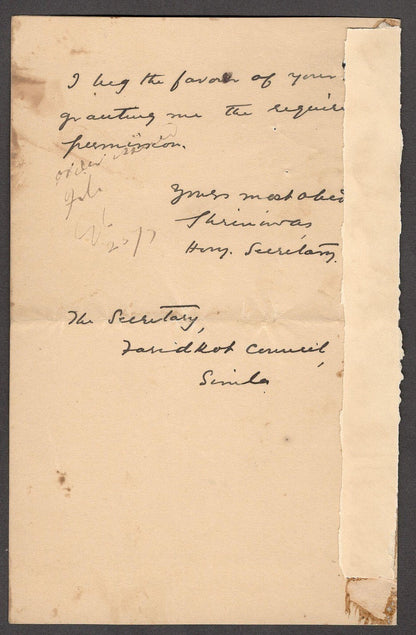 I beg the favour of your
granting me the require
permission.
File
20/7
Yours most obed
Shriniwas
Hony. Secretary.
The Secretary,
Faridkot Council,
Simla